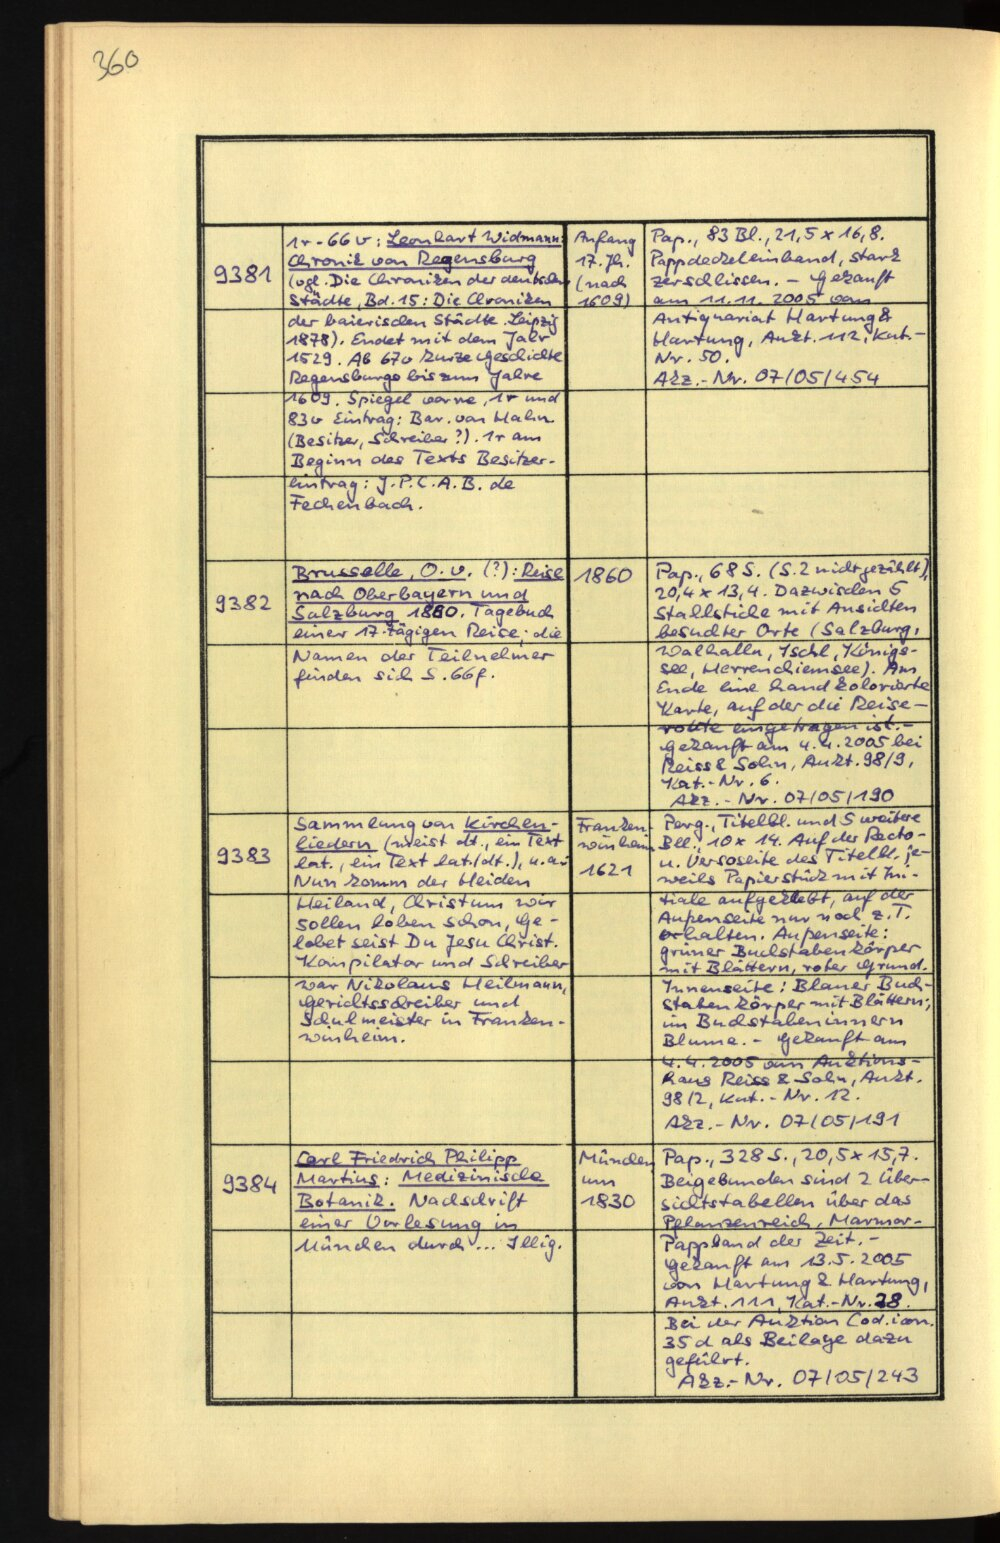 360
9381
1r-66v: Leonhart Widmann:
Chronik von Regensburg
(vgl. Die Chroniken der deutschen
Städte, Bd. 15: Die Chroniken
der baierischen Städte. Leipzig
1878). Endet mit dem Jahr
1529. Ab 67v kurze Geschichte
Regensburgs bis zum Jahre
1609. Spiegel vorne, 1r und
83v Eintrag: Bar. von Hahn
(Besitzer, Schreiber?). 1r am
Beginn des Texts Besitzer-
eintrag: J.P.C.A.B. de
Fechenbach.
Anfang
17. Jh.
(nach
1609)
Pap., 83 Bl., 21,5 x 16,8.
Pappdeckeleinband, stark
zerschlissen. - Gekauft
am 11.11.2005 vom
Antiquariat Hartung &
Hartung, Aukt. 112, Kat.-
Nr. 50.
Akz.-Nr. 07/05/454
9382
Brusselle, O. v. (?): Reise
nach Oberbayern und
Salzburg 1880. Tagebuch
einer 17-tägigen Reise; die
Namen der Teilnehmer
finden sich S. 66f.
1860
Pap., 68 S. (S. 2 nicht gezählt),
20,4 x 13,4. Dazwischen 5
Stahlstiche mit Ansichten
besuchter Orte (Salzburg,
Walhalla, Ischl, Königs-
see, Herrenchiemsee). Am
Ende eine handkolorierte
Karte, auf der die Reise-
route eingetragen ist. -
Gekauft am 4.4.2005 bei
Reiss & Sohn, Aukt. 98/9,
Kat.-Nr. 6.
Akz.-Nr. 07/05/190
9383
Sammlung von Kirchen-
liedern (meist dt., ein Text
lat., ein Text lat./dt.), u.a.:
Nun komm der Heiden
Heiland, Christum wir
sollen loben schon, Ge-
lobet seist Du Jesu Christ.
Kompilator und Schreiber
war Nikolaus Heilmann,
Gerichtsschreiber und
Schulmeister in Franken-
winheim.
Franken-
winheim
1621
Perg., Titelbl. und 5 weitere
Bll., 10 x 14. Auf der Recto-
u. Versoseite des Titelbl. je-
weils Papierstück mit Ini-
tiale aufgeklebt, auf der
Außenseite nur noch z.T.
erhalten. Außenseite:
grüner Buchstabenkörper
mit Blättern, roter Grund.
Innenseite: Blauer Buch-
stabenkörper mit Blättern;
im Buchstabeninnern
Blume. - Gekauft am
4.4.2005 vom Auktions-
haus Reiss & Sohn, Aukt.
98/2, Kat.-Nr. 12.
Akz.-Nr. 07/05/191
9384
Carl Friedrich Philipp
Martius: Medizinische
Botanik. Nachschrift
einer Vorlesung in
München durch ... Illig.
München
um
1830
Pap., 328 S., 20,5 x 15,7.
Beigebunden sind 2 Über-
sichtstabellen über das
Pflanzenreich, Marmor-
Pappband der Zeit. -
Gekauft am 13.5.2005
von Hartung & Hartung,
Aukt. 111, Kat.-Nr. 28.
Bei der Auktion Cod.icon.
35 d als Beilage dazu
geführt.
Akz.-Nr. 07/05/243